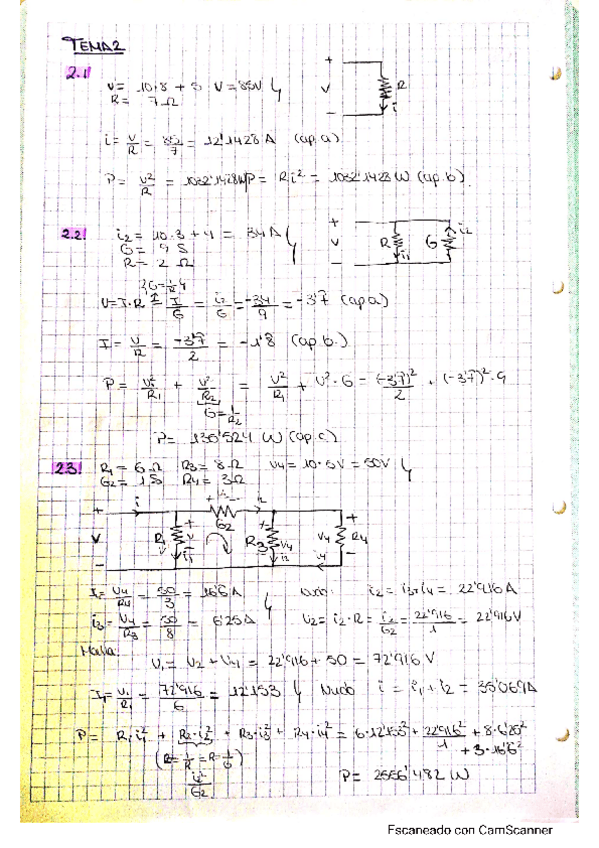 TEMA 2
2.1
V = 10·8 + 5 V = 85V
R = 7 Ω
+
V
R
i
-
i = V/R = 85/7 = 12'1428 A (ap.a)
P = V²/R = 1032'1428W P = Ri² = 1032'1428 W (ap.b)
2.2
i2 = 10·3 + 4 = 34 A
G = 9 S
R = 2 Ω
+
V
R
i1
G
i2
-
G = 1/R
V = I·R = I/G = i2/G = -34/9 = -3'7 (ap.a)
I = V/R = -3'7/2 = -1'8 (ap.b.)
P = V²/R1 + V²/R2 = V²/R1 + V²·G = (-3'7)²/2 + (-3'7)²·9
G = 1/R2
P = 135'524 W (ap.c)
2.3
R1 = 6 Ω R3 = 8 Ω V4 = 10·5V = 50V
G2 = 1S R4 = 3Ω
+ i i2
G2
V R1 V i1 R3 V4 V4 R4
-
I = V4/R4 = 50/3 = 16'6 A Nudo: i2 = i3+i4 = 22'916 A
i3 = V4/R3 = 50/8 = 6'25 A V2 = i2·R = i2/G2 = 22'916/1 = 22'916V
Malla:
V1 = V2 + V4 = 22'916 + 50 = 72'916 V
I1 = V1/R1 = 72'916/6 = 12'153 Nudo i = i1 + i2 = 35'069A
P = R1i1² + R2·i2² + R3·i3² + R4·i4² = 6·12'153² + 22'916²/1 + 8·6'25²
+ 3·16'6²
i2²/G2
P = 2556'482 W
Escaneado con CamScanner